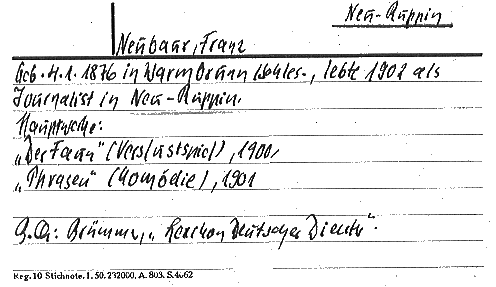 Neu-Ruppin
Neubaur, Franz
Geb. 4.1.1876 in Warmbrunn Schles., lebte 1902 als
Journalist in Neu-Ruppin.
Hauptwerke:
„Der Faun" (Verslustspiel), 1900,
„Phrasen" (Komödie), 1901
B.Q.: Brümmer, „Lexikon Deutscher Dichter".
Reg. 10 Stichnote. I. 50. 232000, A. 803. S. 4662